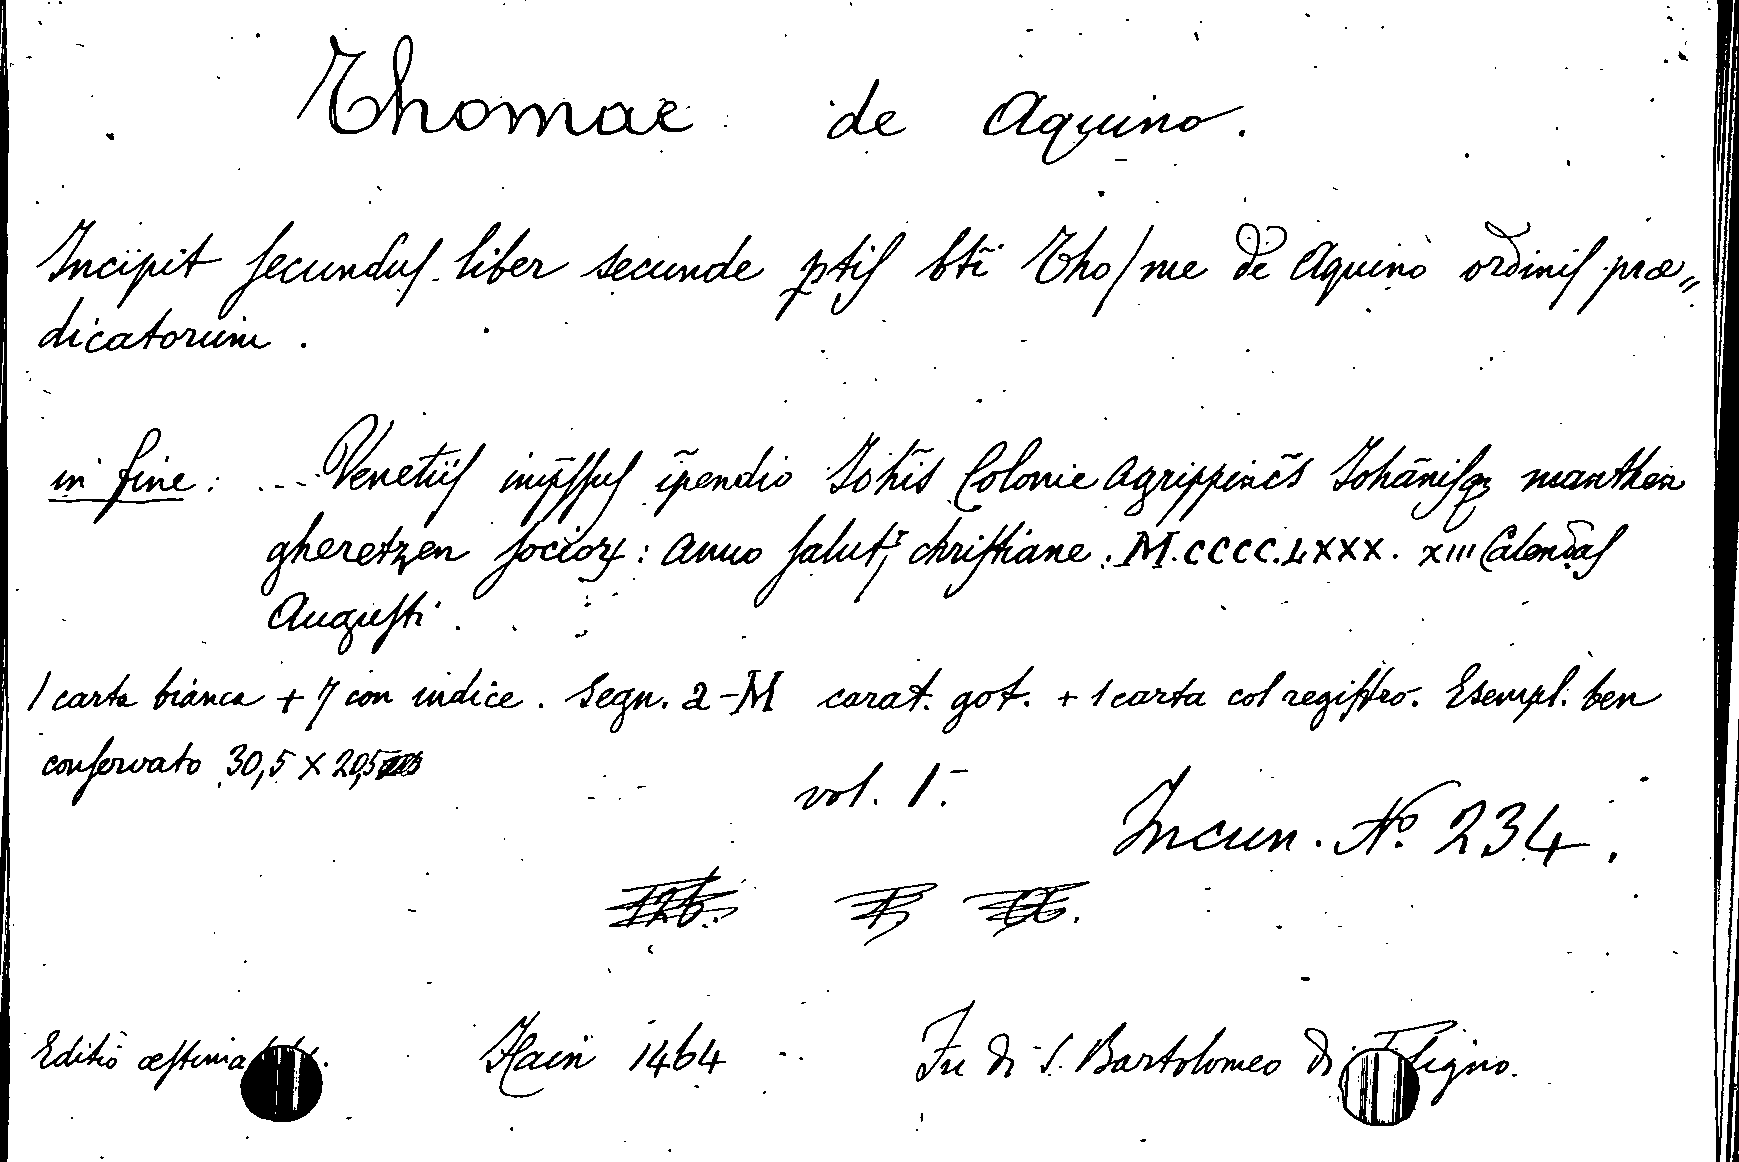 Thomae de Aquino.
Incipit ſecunduſ liber secunde ꝑtiſ bti̅ Tho/me de Aquino ordiniſ præ„
dicatorum.
in fine: ... Venetiiſ imp̅ſſuſ ip̅endio Joh̅is Colonie Agrippinẽs Johãniſqꝫ manthen
gheretzen ſocioꝝ: Anno ſalutꝭ chriſtiane. M.CCCC.LXXX. XIII Calendaſ
Auguſti.
1 carta bianca + 7 con indice. Segn. a-M carat. got. + 1 carta col regiſtro. Esempl. ben
conſervato 30,5 X 20,5
vol. 1.
Incun. No. 234.
Editio æſtima
Hain 1464
Fu di S. Bartolomeo di Foligno.